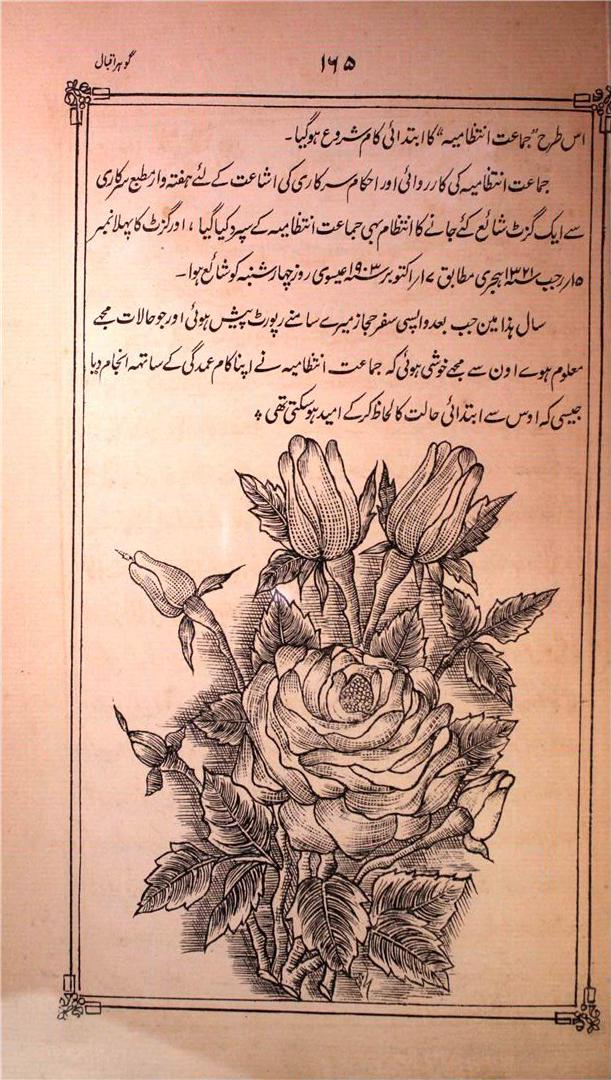 گوہر اقبال
۱۶۵
اس طرح ”جماعت انتظامیہ“ کا ابتدائی کام شروع ہوگیا۔
جماعت انتظامیہ کی کارروائی اور احکام سرکاری کی اشاعت کے لئے ہفتہ وار مطبع سرکاری
سے ایک گزٹ شائع کئے جانے کا انتظام بہی جماعت انتظامیہ کے سپرد کیا گیا ، اور گزٹ کا پہلا نمبر
۱۵؍رجب ۱۳۲۱؁ہجری مطابق ۷؍اکتوبر ۱۹۰۳؁عیسوی روز چہار شنبہ کو شائع ہوا۔
سال ہذا مین جب بعد واپسی سفر حجاز میرے سامنے رپورٹ پیش ہوئی اور جو حالات مجھے
معلوم ہوے اون سے مجھے خوشی ہوئی کہ جماعت انتظامیہ نے اپنا کام عمدگی کے ساتھہ انجام دیا
جیسی کہ اوس سے ابتدائی حالت کا لحاظ کرکے امید ہوسکتی تھی ؞